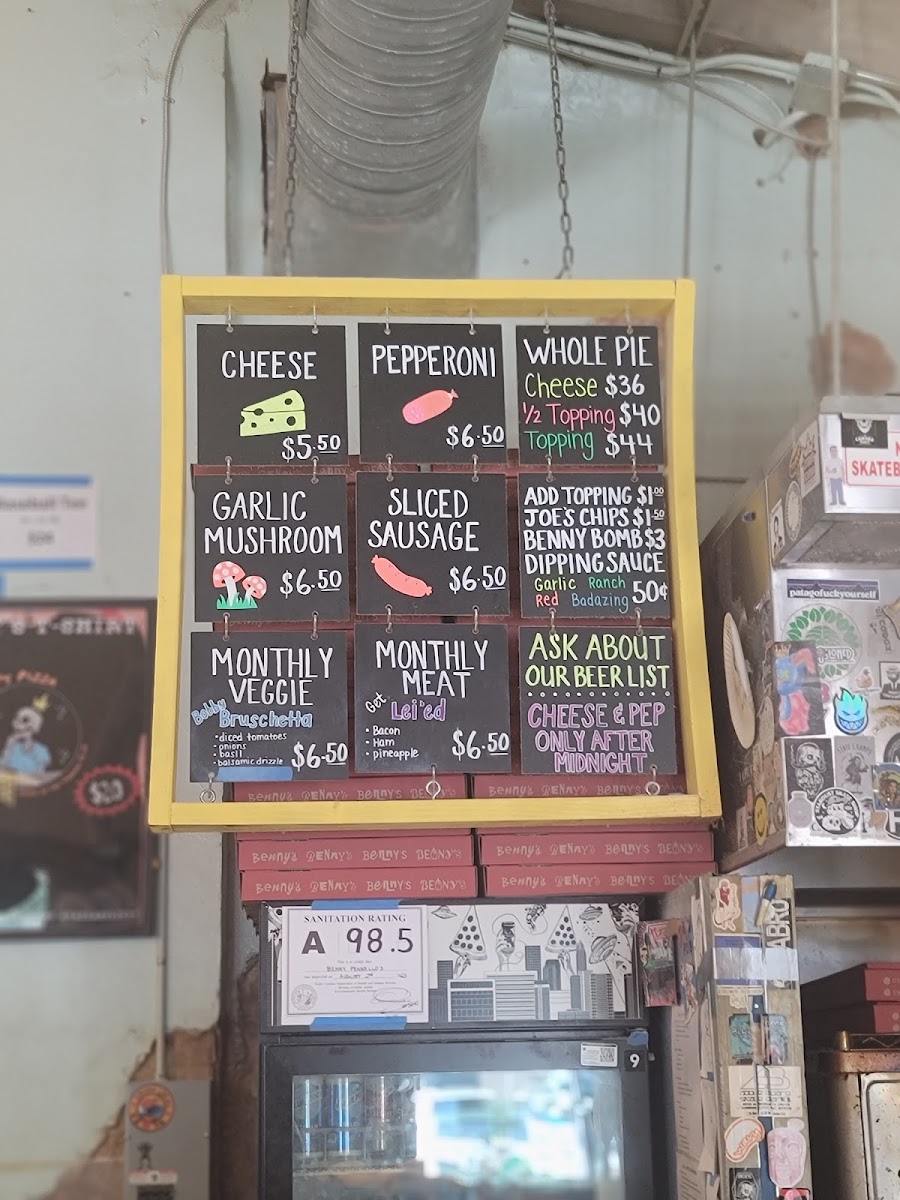 CHEESE
$5.50
PEPPERONI
$6.50
WHOLE PIE
Cheese $36
1/2 Topping $40
Topping $44
GARLIC
MUSHROOM
$6.50
SLICED
SAUSAGE
$6.50
ADD TOPPING $1.00
JOE'S CHIPS $1.50
BENNY BOMB $3
DIPPING SAUCE
Garlic Ranch
Red Badazing 50¢
MONTHLY
VEGGIE
Bobby
Bruschetta
• diced tomatoes
• onions
• basil
• balsamic drizzle
$6.50
MONTHLY
MEAT
Get
Lei'ed
• Bacon
• Ham
• pineapple
$6.50
ASK ABOUT
OUR BEER LIST
CHEESE & PEP
ONLY AFTER
MIDNIGHT
Benny's Benny's Benny's Benny's
Benny's Benny's Benny's
Benny's Benny's Benny's Benny's
Benny's Benny's Benny's Benny's
Benny's Benny's Benny's Benny's
Benny's Benny's Benny's Benny's
SANITATION RATING
A 98.5
9
T-SHIRT
$23
SKATEB
patagofuckyourself